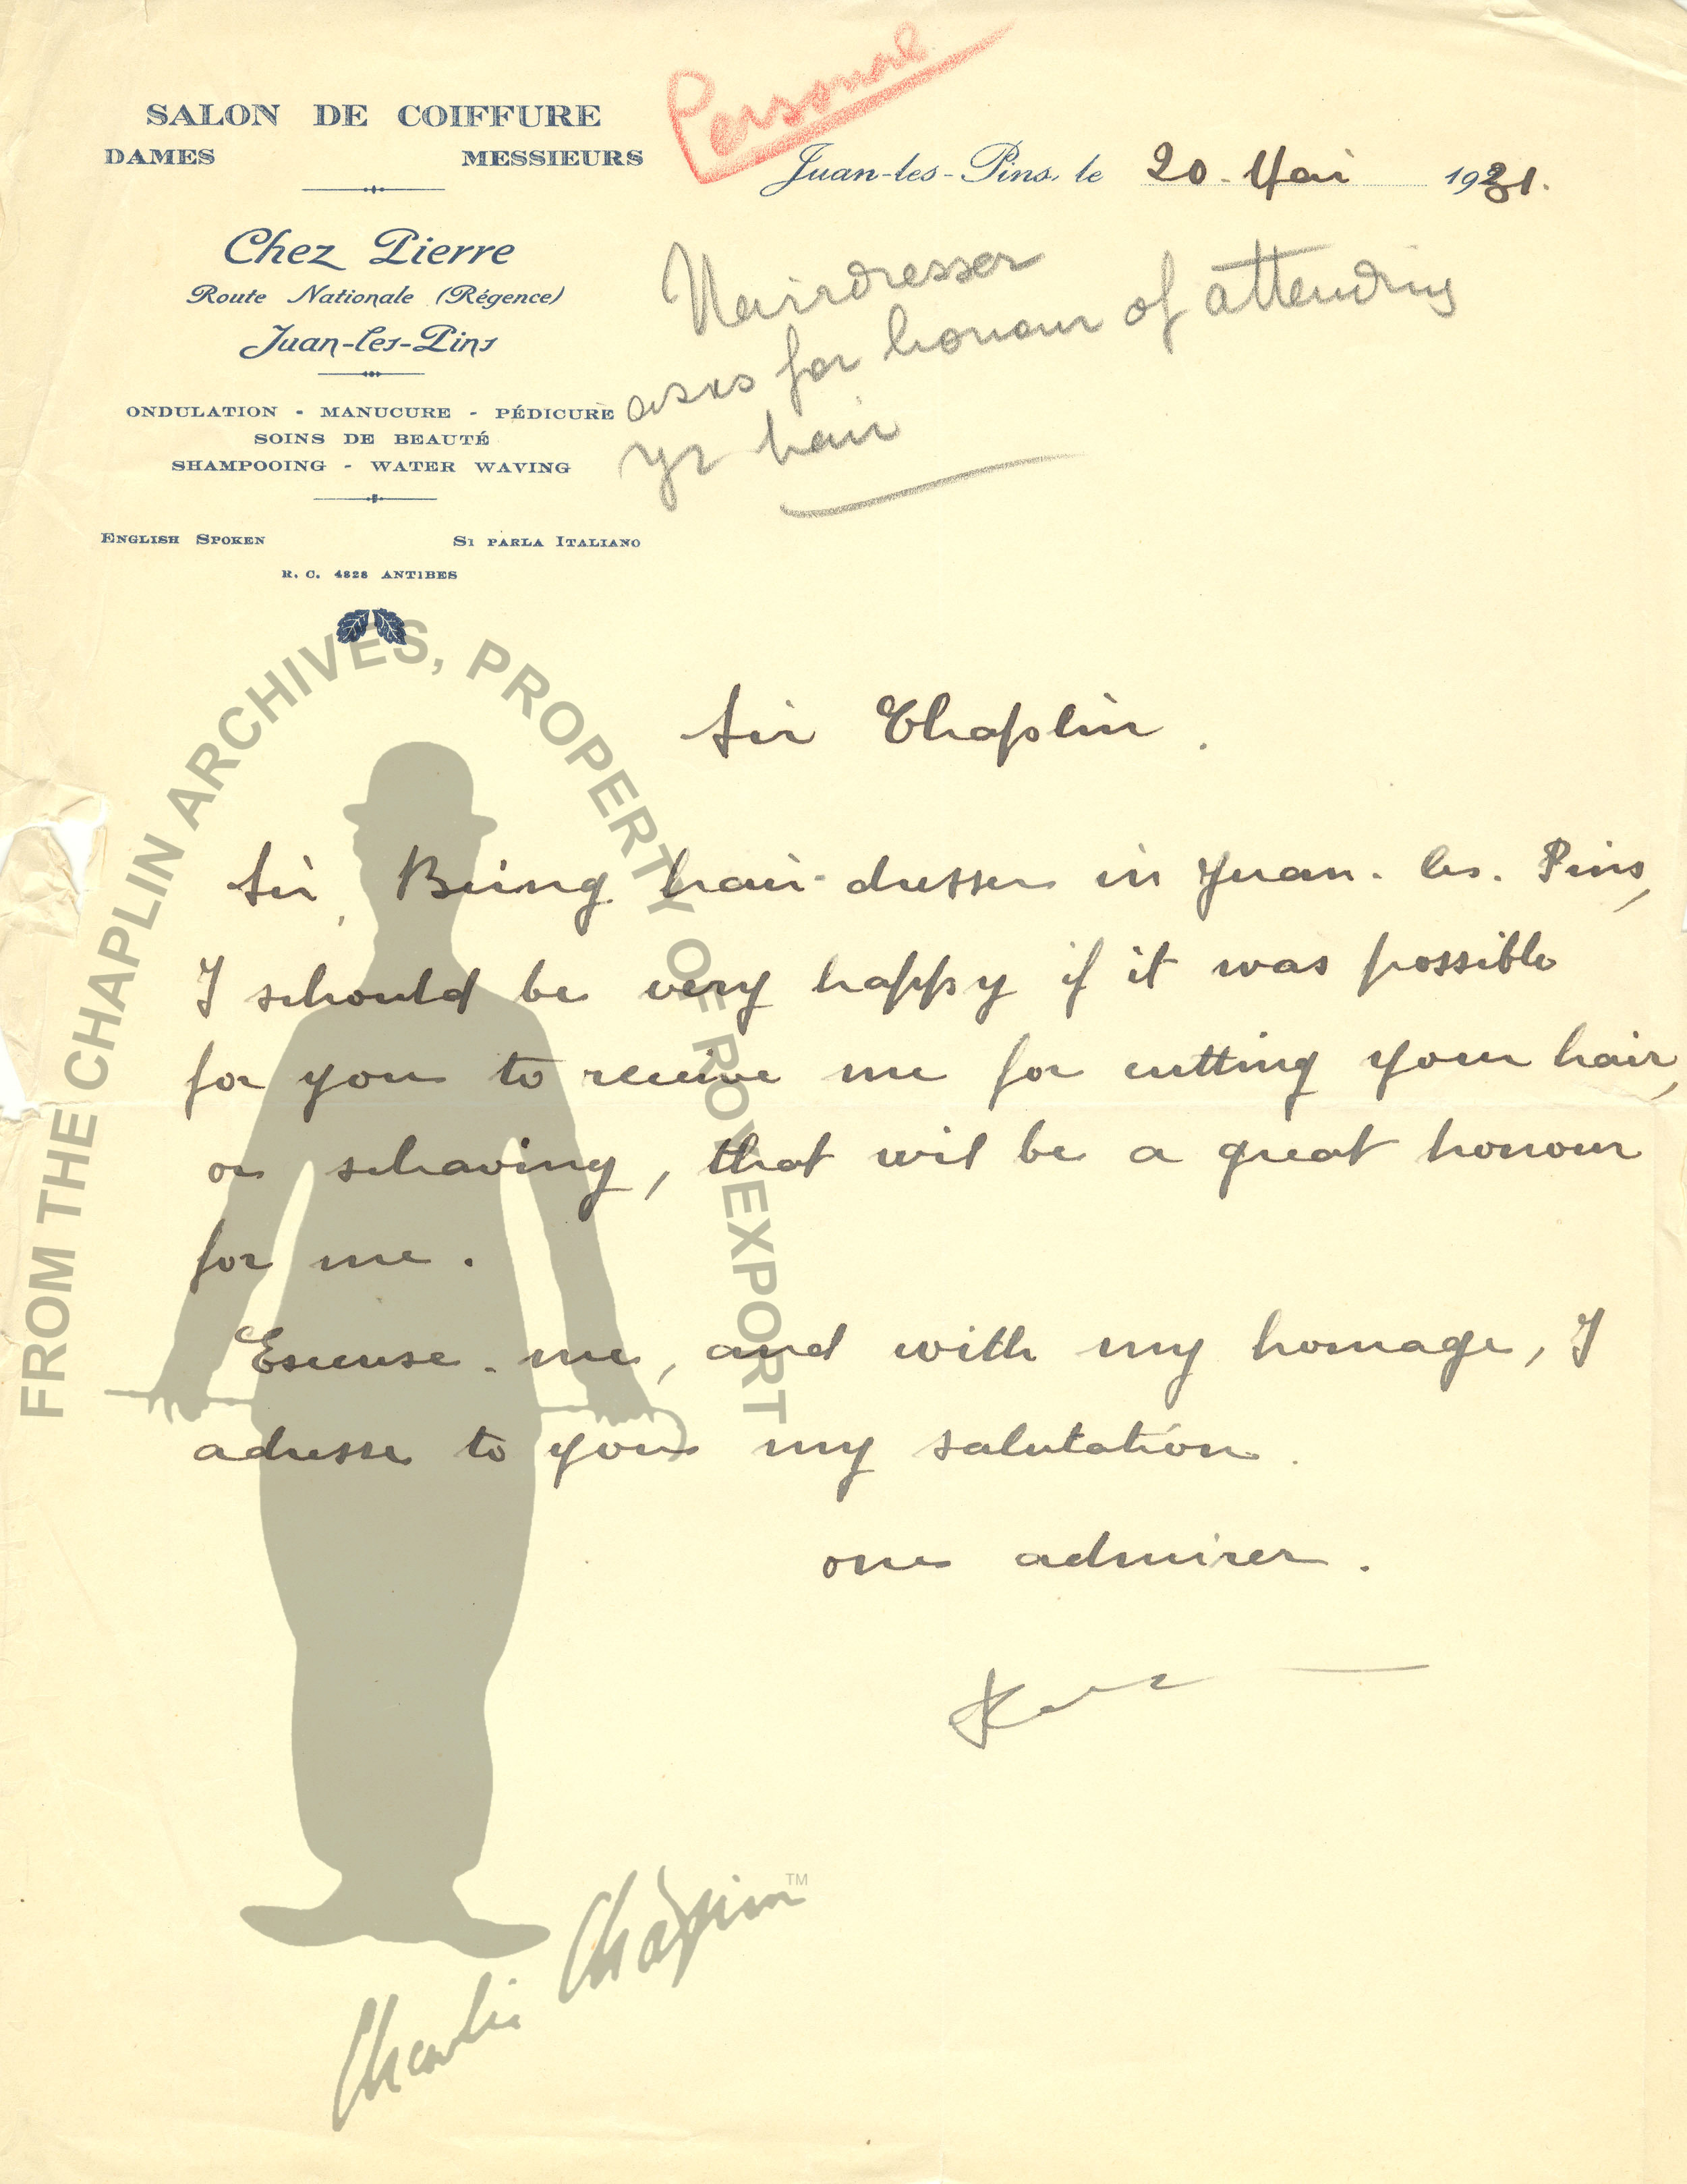 SALON DE COIFFURE
DAMES MESSIEURS
Chez Pierre
Route Nationale (Régence)
Juan-les-Pins
ONDULATION - MANUCURE - PÉDICURE
SOINS DE BEAUTÉ
SHAMPOOING - WATER WAVING
ENGLISH SPOKEN SI PARLA ITALIANO
R. C. 4828 ANTIBES
Personal
Juan-les-Pins, le 20. Mai 1931.
Hairdresser
asks for honour of attending
yr hair
Sir Chaplin.
Sir, Being hair-dresser in Juan. les. Pins,
I schould be very happy if it was possible
for you to receive me for cutting your hair,
or schaving, that wil be a great honour
for me.
Escuse-me, and with my homage, I
adresse to you my salutation.
one admirer.
FROM THE CHAPLIN ARCHIVES, PROPERTY OF ROY EXPORT
Charlie Chaplin™